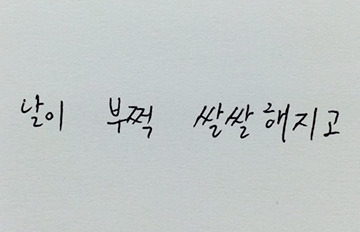 날이 부쩍 쌀쌀해지고